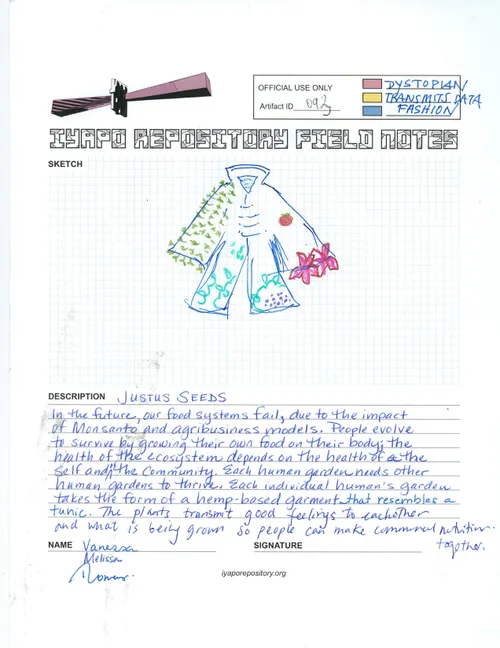 OFFICIAL USE ONLY
Artifact ID 092
DYSTOPIAN/
TRANSMITS DATA
FASHION/
IYAPO REPOSITORY FIELD NOTES
SKETCH
DESCRIPTION JUSTUS SEEDS
In the future, our food systems fail, due to the impact
of Monsanto and agribusiness models. People evolve
to survive by growing their own food on their body; the
health of the ecosystem depends on the health of the
self and the Community. Each human garden needs other
human gardens to thrive. Each individual human's garden
takes the form of a hemp-based garment that resembles a
tunic. The plants transmit good feelings to eachother
and what is being grown so people can make communal nutrition
together.
NAME Vanessa
SIGNATURE
Melissa
iyaporepository.org